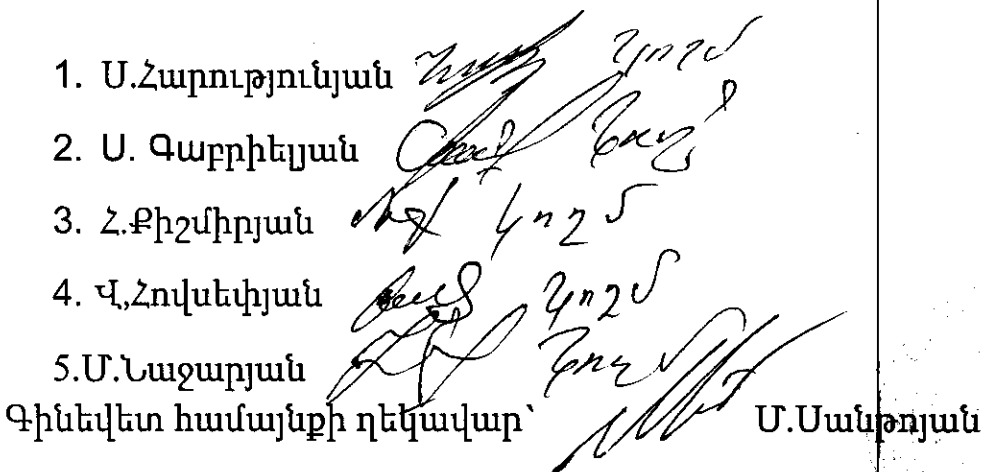 1. Ս.Հարությունյան կողմ
2. Ս. Գաբրիելյան կողմ
3. Հ.Քիշմիրյան կողմ
4. Վ,Հովսեփյան կողմ
5.Մ.Նաջարյան կողմ
Գինեվետ համայնքի ղեկավար՝ Մ.Սանթոյան